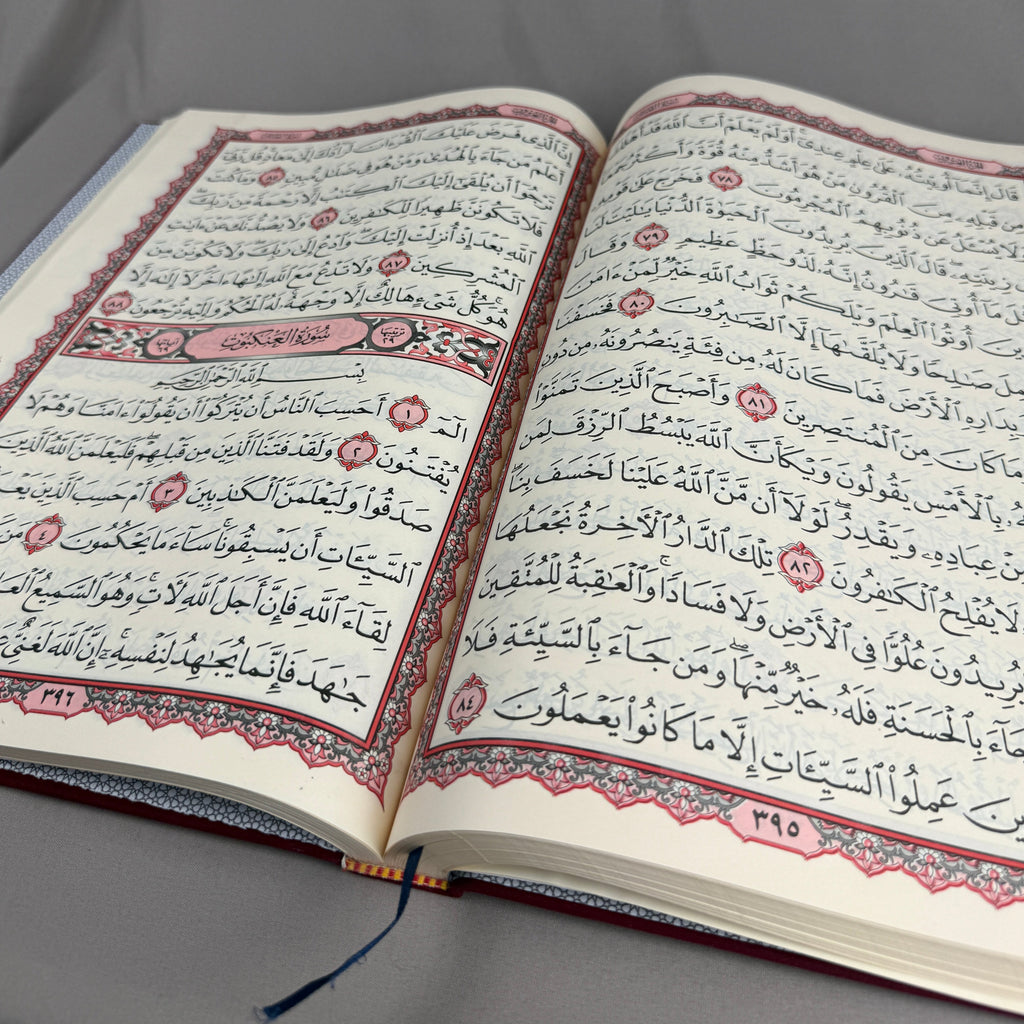 قَالَ إِنَّمَآ أُوتِيتُهُۥ عَلَىٰ عِلْمٍ عِندِىٓۚ أَوَلَمْ يَعْلَمْ أَنَّ ٱللَّهَ قَدْ أَهْلَكَ
مِن قَبْلِهِۦ مِنَ ٱلْقُرُونِ مَنْ هُوَ أَشَدُّ مِنْهُ قُوَّةً وَأَكْثَرُ
وَلَا يُسْـَٔلُ عَن ذُنُوبِهِمُ ٱلْمُجْرِمُونَ ٧٨ فَخَرَجَ عَلَىٰ قَوْمِهِۦ
زِينَتِهِۦۖ قَالَ ٱلَّذِينَ يُرِيدُونَ ٱلْحَيَوٰةَ ٱلدُّنْيَا يَٰلَيْتَ لَنَا
مَآ أُوتِىَ قَٰرُونُ إِنَّهُۥ لَذُو حَظٍّ عَظِيمٍ ٧٩ وَقَالَ
أُوتُوا۟ ٱلْعِلْمَ وَيْلَكُمْ ثَوَابُ ٱللَّهِ خَيْرٌ لِّمَنْ ءَامَنَ
صَٰلِحًا وَلَا يُلَقَّىٰهَآ إِلَّا ٱلصَّٰبِرُونَ ٨٠ فَخَسَفْنَا
وَبِدَارِهِ ٱلْأَرْضَ فَمَا كَانَ لَهُۥ مِن فِئَةٍ يَنصُرُونَهُۥ مِن دُونِ
وَمَا كَانَ مِنَ ٱلْمُنتَصِرِينَ ٨١ وَأَصْبَحَ ٱلَّذِينَ تَمَنَّوْا۟
بِٱلْأَمْسِ يَقُولُونَ وَيْكَأَنَّ ٱللَّهَ يَبْسُطُ ٱلرِّزْقَ لِمَن
مِنْ عِبَادِهِۦ وَيَقْدِرُۖ لَوْلَآ أَن مَّنَّ ٱللَّهُ عَلَيْنَا لَخَسَفَ بِنَاۖ
لَا يُفْلِحُ ٱلْكَٰفِرُونَ ٨٢ تِلْكَ ٱلدَّارُ ٱلْأَخِرَةُ نَجْعَلُهَا
يُرِيدُونَ عُلُوًّا فِى ٱلْأَرْضِ وَلَا فَسَادًاۚ وَٱلْعَٰقِبَةُ لِلْمُتَّقِينَ
جَآءَ بِٱلْحَسَنَةِ فَلَهُۥ خَيْرٌ مِّنْهَاۖ وَمَن جَآءَ بِٱلسَّيِّئَةِ فَلَا
عَمِلُوا۟ ٱلسَّيِّـَٔاتِ إِلَّا مَا كَانُوا۟ يَعْمَلُونَ ٨٤
٣٩٥
إِنَّ ٱلَّذِى فَرَضَ عَلَيْكَ ٱلْقُرْءَانَ لَرَآدُّكَ إِلَىٰ مَعَادٍۚ قُل رَّبِّىٓ
أَعْلَمُ مَن جَآءَ بِٱلْهُدَىٰ وَمَنْ هُوَ فِى ضَلَٰلٍ مُّبِينٍ ٨٥ وَمَا كُنتَ
تَرْجُوٓا۟ أَن يُلْقَىٰٓ إِلَيْكَ ٱلْكِتَٰبُ إِلَّا رَحْمَةً مِّن رَّبِّكَۖ
فَلَا تَكُونَنَّ ظَهِيرًا لِّلْكَٰفِرِينَ ٨٦ وَلَا يَصُدُّنَّكَ عَنْ ءَايَٰتِ
ٱللَّهِ بَعْدَ إِذْ أُنزِلَتْ إِلَيْكَۖ وَٱدْعُ إِلَىٰ رَبِّكَۖ وَلَا تَكُونَنَّ مِنَ
ٱلْمُشْرِكِينَ ٨٧ وَلَا تَدْعُ مَعَ ٱللَّهِ إِلَٰهًا ءَاخَرَۘ لَآ إِلَٰهَ إِلَّا
هُوَۚ كُلُّ شَىْءٍ هَالِكٌ إِلَّا وَجْهَهُۥۚ لَهُ ٱلْحُكْمُ وَإِلَيْهِ تُرْجَعُونَ ٨٨
ترتيبها ٢٩ سُورَةُ الْعَنكَبُوتِ آياتها ٦٩
بِسْمِ ٱللَّهِ ٱلرَّحْمَٰنِ ٱلرَّحِيمِ
الٓمٓ ١ أَحَسِبَ ٱلنَّاسُ أَن يُتْرَكُوٓا۟ أَن يَقُولُوٓا۟ ءَامَنَّا وَهُمْ لَا
يُفْتَنُونَ ٢ وَلَقَدْ فَتَنَّا ٱلَّذِينَ مِن قَبْلِهِمْۖ فَلَيَعْلَمَنَّ ٱللَّهُ ٱلَّذِينَ
صَدَقُوا۟ وَلَيَعْلَمَنَّ ٱلْكَٰذِبِينَ ٣ أَمْ حَسِبَ ٱلَّذِينَ
ٱلسَّيِّـَٔاتِ أَن يَسْبِقُونَاۚ سَآءَ مَا يَحْكُمُونَ ٤ مَن
لِقَآءَ ٱللَّهِ فَإِنَّ أَجَلَ ٱللَّهِ لَأٓتٍۚ وَهُوَ ٱلسَّمِيعُ
جَٰهَدَ فَإِنَّمَا يُجَٰهِدُ لِنَفْسِهِۦٓۚ إِنَّ ٱللَّهَ لَغَنِىٌّ
٣٩٦